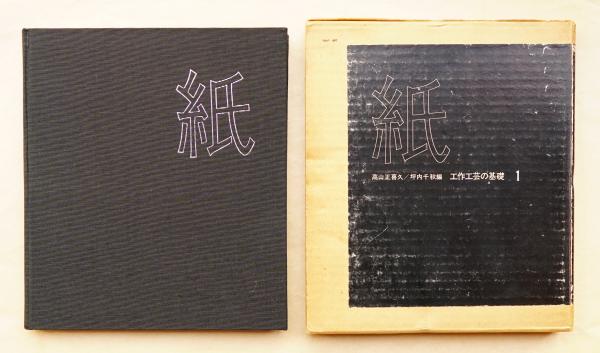 紙
紙
高山正喜久／坪内千秋編 工作工芸の基礎 1